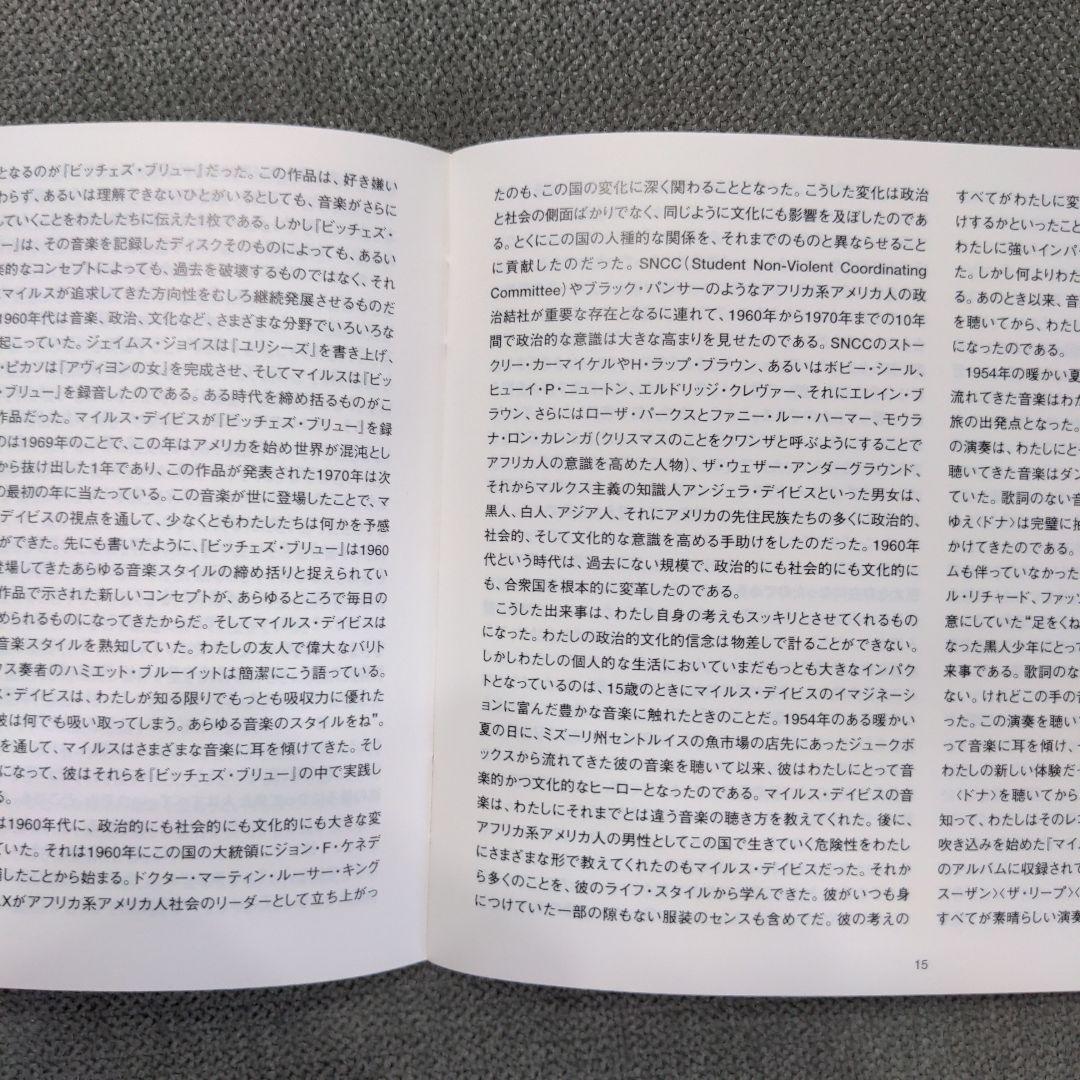 となるのが『ビッチェズ・ブリュー』だった。この作品は、好き嫌い
わらず、あるいは理解できないひとがいるとしても、音楽がさらに
していくことをわたしたちに伝えた1枚である。しかし『ビッチェズ・
ー』は、その音楽を記録したディスクそのものによっても、あるい
楽的なコンセプトによっても、過去を破壊するものではなく、それ
にマイルスが追求してきた方向性をむしろ継続発展させるものだ
1960年代は音楽、政治、文化など、さまざまな分野でいろいろな
起こっていた。ジェイムス・ジョイスは『ユリシーズ』を書き上げ、
・ピカソは『アヴィヨンの女』を完成させ、そしてマイルスは『ビッ
・ブリュー』を録音したのである。ある時代を締め括るものがこ
作品だった。マイルス・デイビスが『ビッチェズ・ブリュー』を録
のは1969年のことで、この年はアメリカを始め世界が混沌とし
から抜け出した1年であり、この作品が発表された1970年は次
の最初の年に当たっている。この音楽が世に登場したことで、マ
デイビスの視点を通して、少なくともわたしたちは何かを予感
ができた。先にも書いたように、『ビッチェズ・ブリュー』は1960
登場してきたあらゆる音楽スタイルの締め括りと捉えられてい
作品で示された新しいコンセプトが、あらゆるところで毎日の
められるものになってきたからだ。そしてマイルス・デイビスは
音楽スタイルを熟知していた。わたしの友人で偉大なバリト
クス奏者のハミエット・ブルーイットは簡潔にこう語っている。
ス・デイビスは、わたしが知る限りでもっとも吸収力に優れた
彼は何でも吸い取ってしまう。あらゆる音楽のスタイルをね”。
を通して、マイルスはさまざまな音楽に耳を傾けてきた。そし
になって、彼はそれらを『ビッチェズ・ブリュー』の中で実践し
る。
は1960年代に、政治的にも社会的にも文化的にも大きな変
ていた。それは1960年にこの国の大統領にジョン・F・ケネデ
したことから始まる。ドクター・マーティン・ルーサー・キング
Xがアフリカ系アメリカ人社会のリーダーとして立ち上がっ
たのも、この国の変化に深く関わることとなった。こうした変化は政治
と社会の側面ばかりでなく、同じように文化にも影響を及ぼしたのであ
る。とくにこの国の人種的な関係を、それまでのものと異ならせること
に貢献したのだった。SNCC（Student Non-Violent Coordinating
Committee）やブラック・パンサーのようなアフリカ系アメリカ人の政
治結社が重要な存在となるに連れて、1960年から1970年までの10年
間で政治的な意識は大きな高まりを見せたのである。SNCCのストー
クリー・カーマイケルやH・ラップ・ブラウン、あるいはボビー・シール、
ヒューイ・P・ニュートン、エルドリッジ・クレヴァー、それにエレイン・ブ
ラウン、さらにはローザ・パークスとファニー・ルー・ハーマー、モウラ
ナ・ロン・カレンガ（クリスマスのことをクワンザと呼ぶようにすることで
アフリカ人の意識を高めた人物）、ザ・ウェザー・アンダーグラウンド、
それからマルクス主義の知識人アンジェラ・デイビスといった男女は、
黒人、白人、アジア人、それにアメリカの先住民族たちの多くに政治的、
社会的、そして文化的な意識を高める手助けをしたのだった。1960年
代という時代は、過去にない規模で、政治的にも社会的にも文化的に
も、合衆国を根本的に変革したのである。
こうした出来事は、わたし自身の考えもスッキリとさせてくれるもの
になった。わたしの政治的文化的信念は物差しで計ることができない。
しかしわたしの個人的な生活においていまだもっとも大きなインパク
トとなっているのは、15歳のときにマイルス・デイビスのイマジネーシ
ョンに富んだ豊かな音楽に触れたときのことだ。1954年のある暖かい
夏の日に、ミズーリ州セントルイスの魚市場の店先にあったジュークボ
ックスから流れてきた彼の音楽を聴いて以来、彼はわたしにとって音
楽的かつ文化的なヒーローとなったのである。マイルス・デイビスの音
楽は、わたしにそれまでとは違う音楽の聴き方を教えてくれた。後に、
アフリカ系アメリカ人の男性としてこの国で生きていく危険性をわたし
にさまざまな形で教えてくれたのもマイルス・デイビスだった。それか
ら多くのことを、彼のライフ・スタイルから学んできた。彼がいつも身
につけていた一部の隙もない服装のセンスも含めてだ。彼の考えの
15
すべてがわたしに変
けするかといったこと
わたしに強いインパ
た。しかし何よりわた
る。あのとき以来、音
を聴いてから、わたし
になったのである。
1954年の暖かい夏
流れてきた音楽はわた
旅の出発点となった。
の演奏は、わたしにと
聴いてきた音楽はダン
ていた。歌詞のない音
ゆえ〈ドナ〉は完璧に抽
かけてきたのである。
ムも伴っていなかった
ル・リチャード、ファッツ
意にしていた“足をくね
なった黒人少年にとって
来事である。歌詞のな
ない。けれどこの手の音
った。この演奏を聴いて
って音楽に耳を傾け、
わたしの新しい体験だ
〈ドナ〉を聴いてから
知って、わたしはそのレコ
吹き込みを始めた『マイ
のアルバムに収録されて
スーザン〉〈ザ・リープ〉〈
すべてが素晴らしい演奏